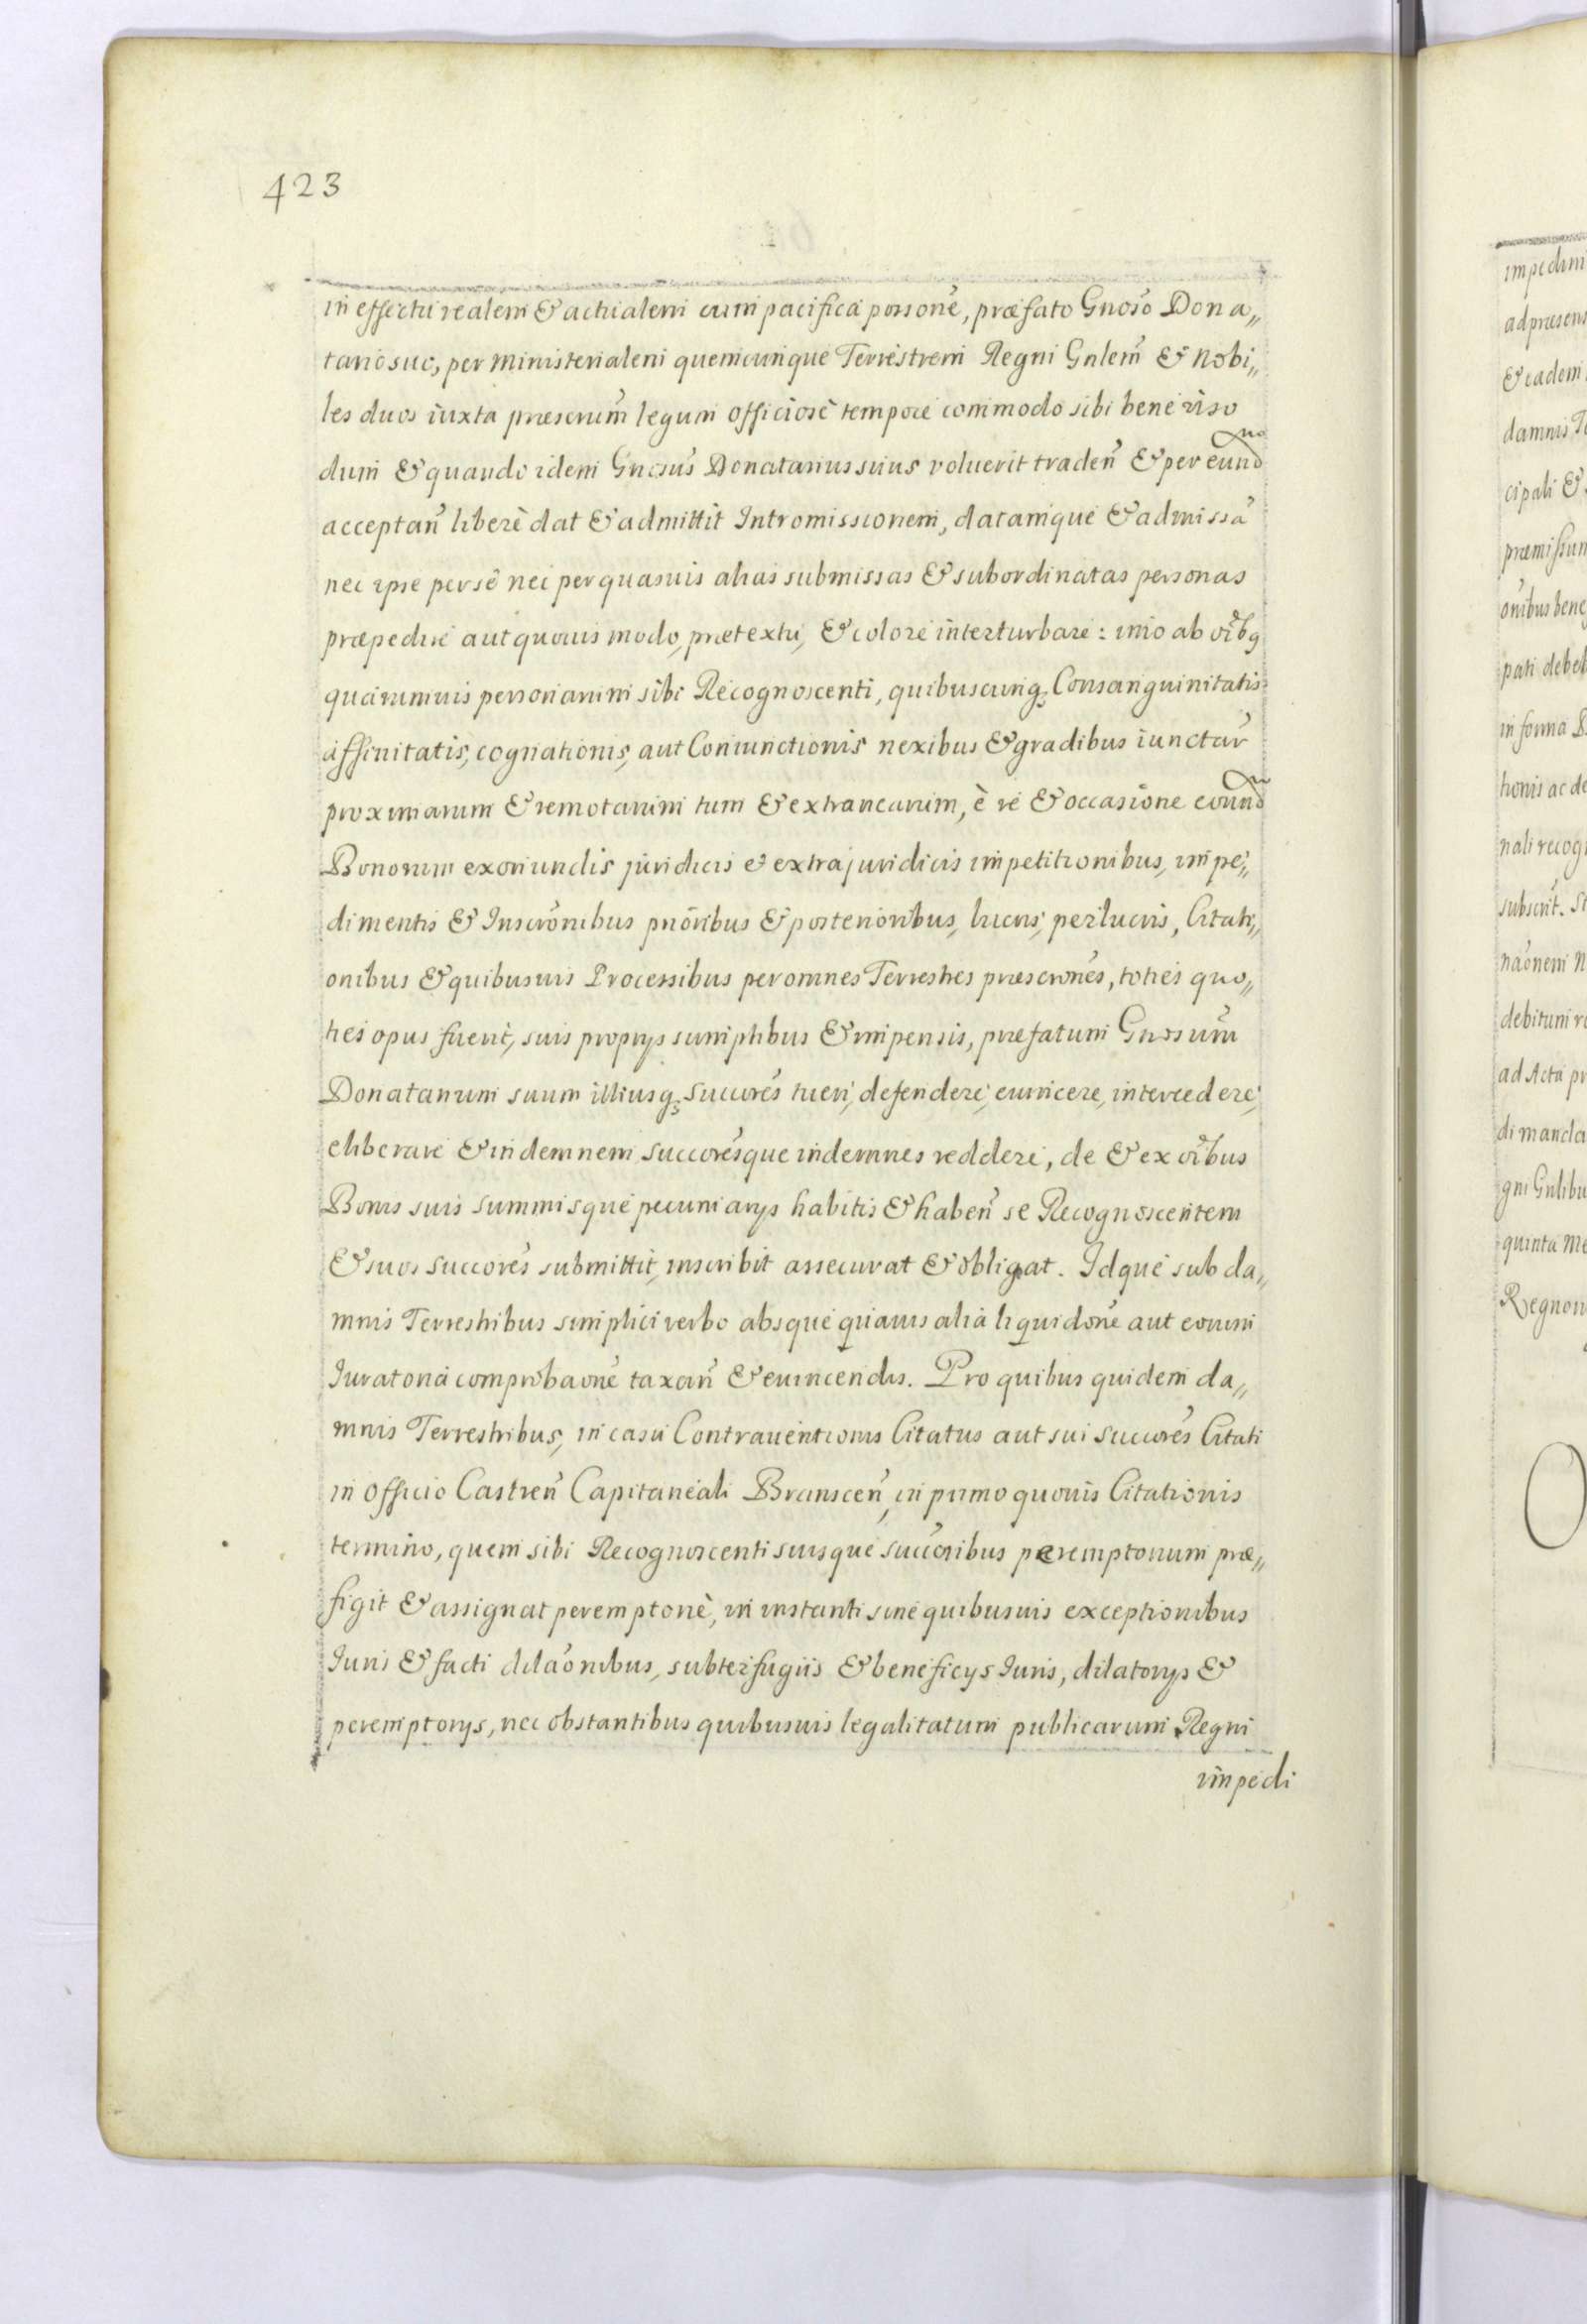 423
in effectu realem & actualem cum pacifica possone, præfato Gnoso Dona„
tario suo, per ministerialem quemcunque Terrestrem Regni Gnlem & Nobi„
les duos iuxta præscrum legum officiose tempore commodo sibi bene viso
dum & quando idem Gnosus Donatarius suius voluerit traden & per eund
acceptan liberè dat & admittit Intromissionem, datamque & admissa
nec ipse per se nec per quasuis alias submissas & subordinatas personas
præpedire aut quouis modo, prætextu, & colore interturbare: imo ab oibq
quarumuis personarum sibi Recognoscenti, quibuscunq; Consanguinitatis
affinitatis, cognationis, aut Coniunctionis nexibus & gradibus iunctar
proximarum & remotarum tum & extranearum, è re & occasione eorund
Bonorum exoriundis juridicis et extrajuridicis impetitionibus, impe„
dimentis & Inscronibus prioribus & posterioribus, lucris, perlucris, Citati„
onibus & quibusuis Processibus per omnes Terrestres præscrones, toties quo„
ties opus fuerit, suis proprys sumptibus & impensis, præfatum Gnosum
Donatarium suum illiusq; succores tueri, defendere, euincere, intercedere,
eliberare & indemnem succoresque indemnes reddere, de & ex oibus
Bonis suis summisque pecuniarys habitis & haben se Recognoscentem
& suos succores submittit, inscribit assecurat & obligat. Idque sub da„
mnis Terrestribus simplici verbo absque quauis alia liquidone aut eorum
Iuratoria comprobaone taxan & euincendis. Pro quibus quidem da„
mnis Terrestribus, in casu Contrauentionis Citatus aut sui succores Citati
in Officio Castren Capitaneali Branscen, in primo quouis Citationis
termino, quem sibi Recognoscenti suisque succoribus peremptorium præ„
figit & assignat peremptoriè, in instanti sine quibusuis exceptionibus
Iuris & facti dilaonibus, subterfugiis & beneficys Iuris, dilatorys &
peremptorys, nec obstantibus quibusuis legalitatum publicarum Regni
impedi
impedim
ad præsens
& eadem
damnis
cipali &
præmissum
onibus bene
pati debe
in forma
tionis ac de
nali recog
subscrit.
naonem
debitum
ad Acta pr
di manda
gni Gnlibu
quinta Me
Regnor
O